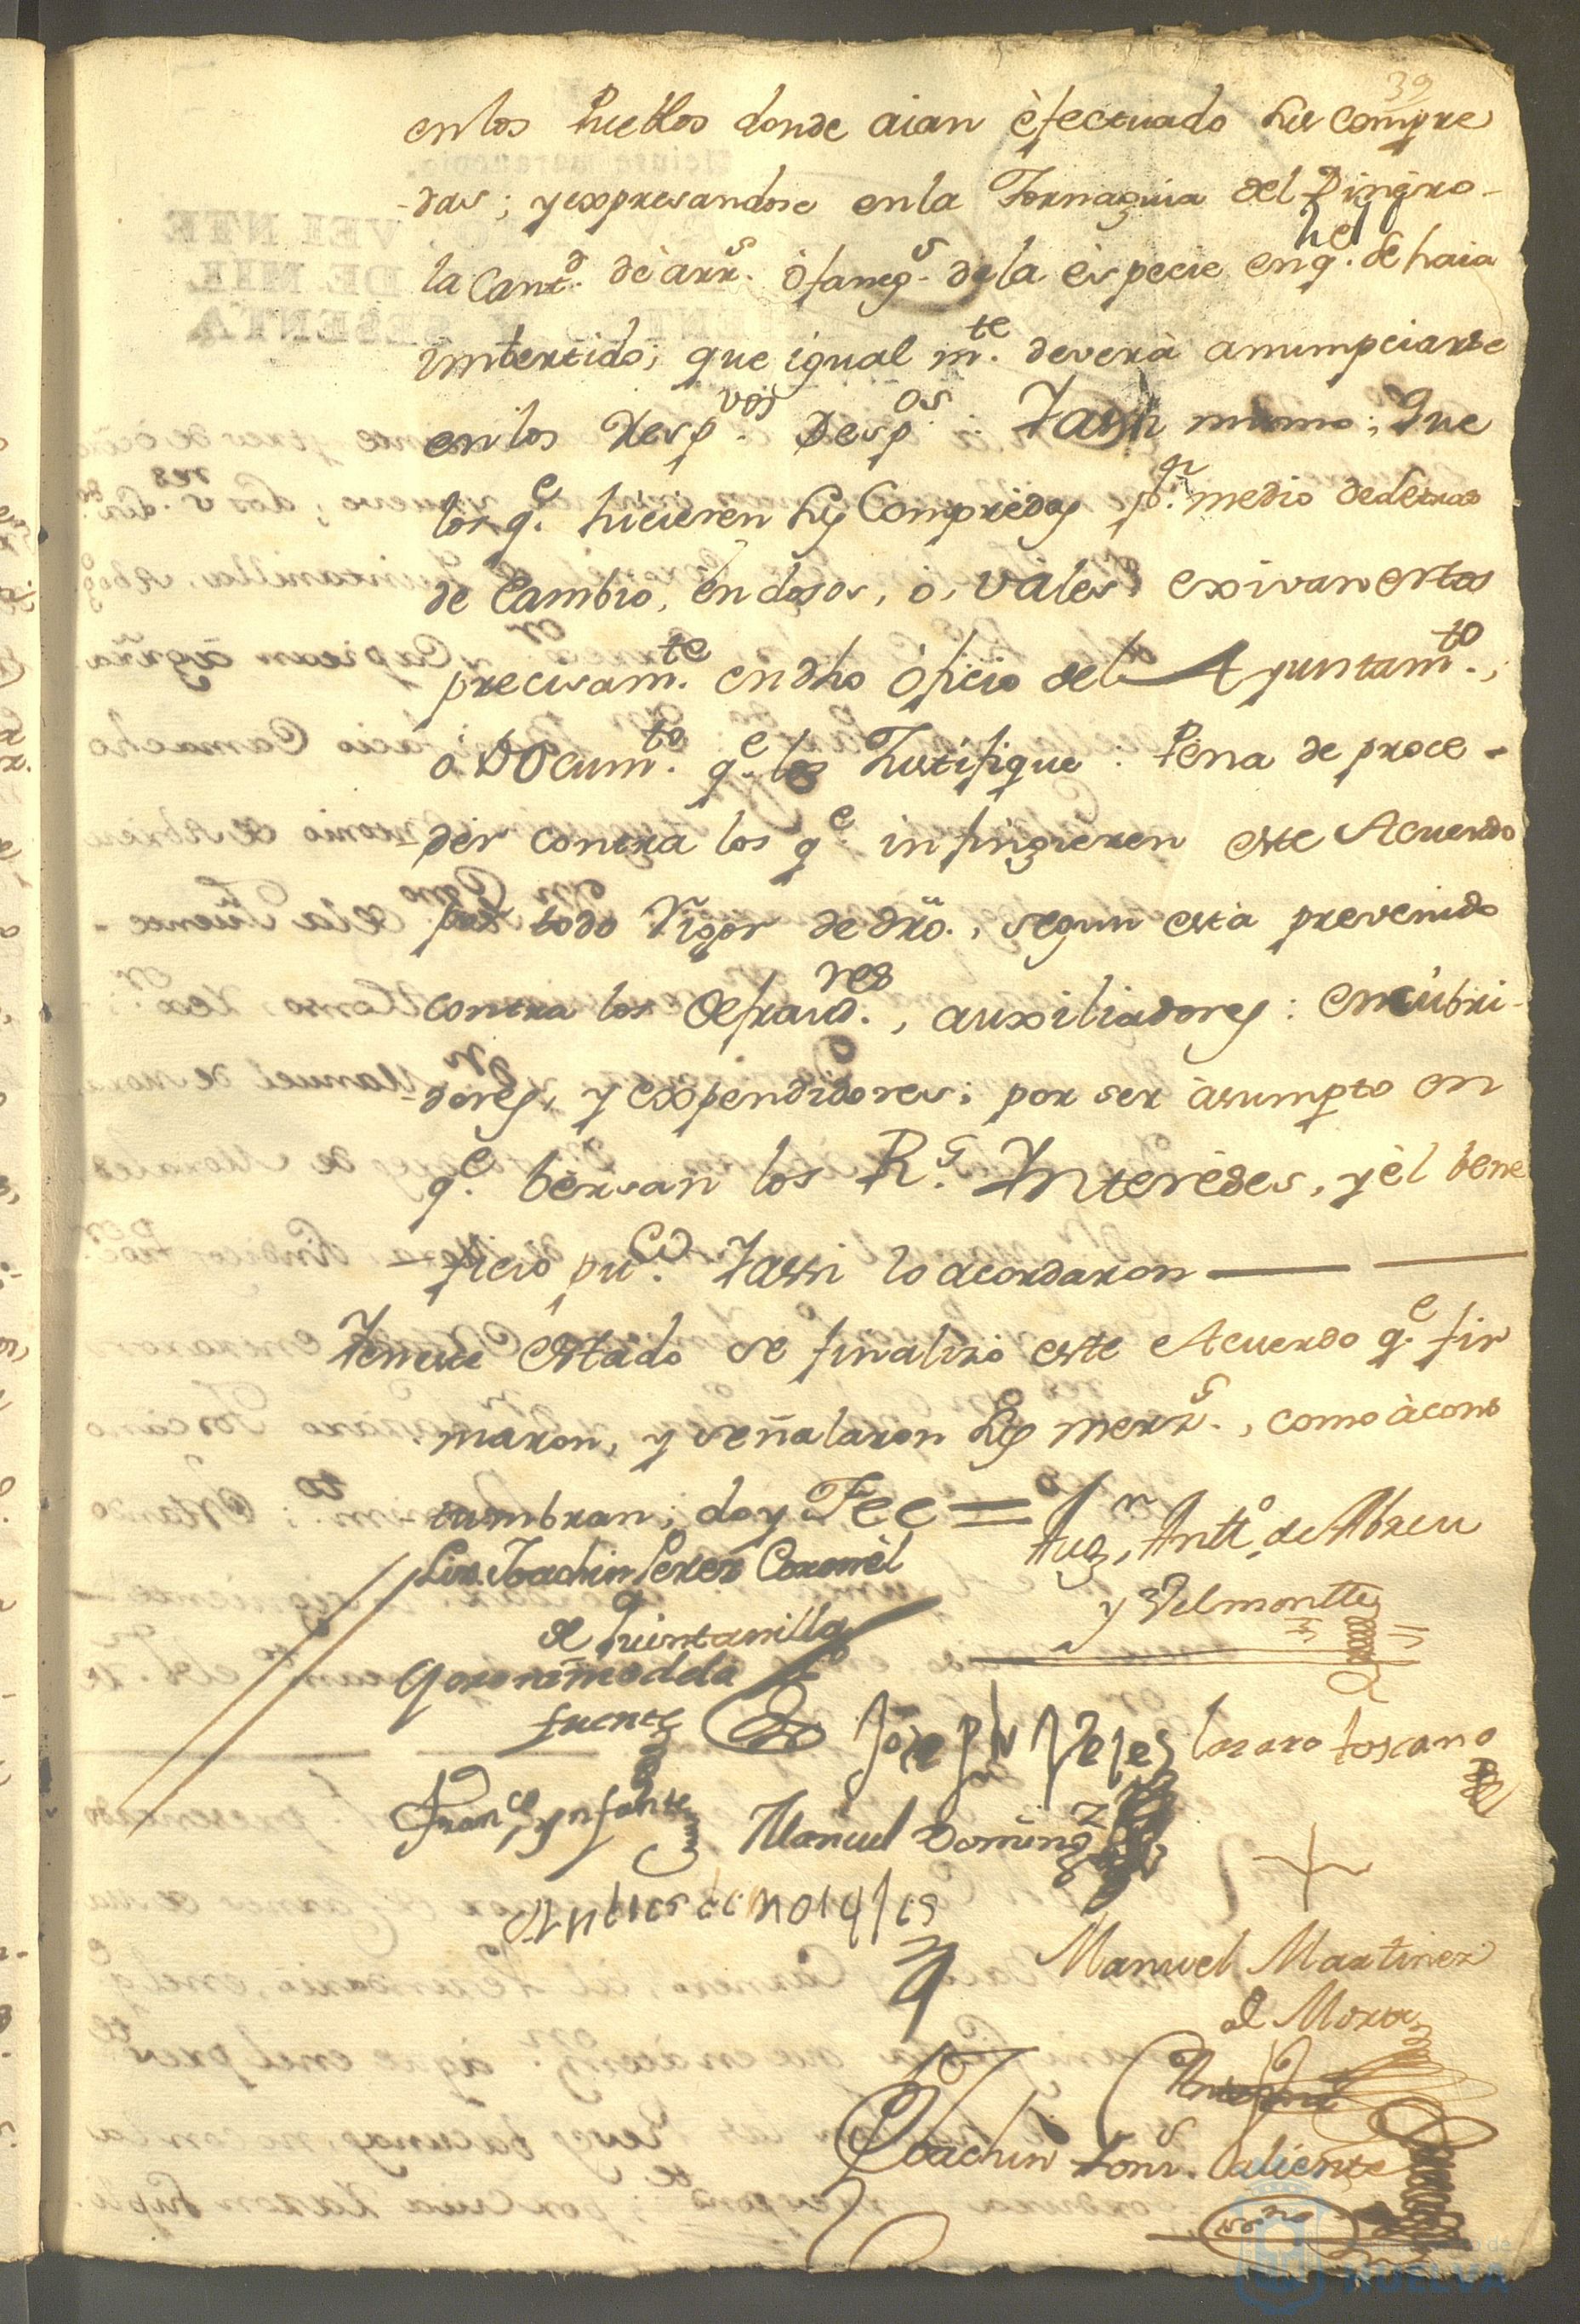 39
en los Pueblos donde aian èfectuado Las Compre
das; y expresandose en la Tornaguia del Dinero
la Cant.d de àrr.s ò faneg.s de la èspecie en q.e se haia
imbertido; que igual m.te deverà anumpciarse
en los Resp.vos Desp.os: Y assi mismo; Que
los q.e hicieren Las Compredas p.r medio de Letras
de Cambio, èndosos, ò, vales exivan estos
precisam.te en dho òficio del Ayuntam.to,
ò Docum.to q.e los Justifique: Pena de proce-
der contra los q.e infringieren este Acuerdo
por todo rigor de dro., segun està prevenido
contra los Defraud.res, auxiliadores: encubri-
dores, y expendidores; por ser àsumpto en
q.e bèrsan los R.s Interèses, y èl bene
ficio pu.co Y assi lo acordaron
Y en este estàdo se finalizò este Acuerdo q.e fir
maron, y señalaron Las merz.s, como àcons
tumbran; doy Fee =
Lizdo. Joachin Perez Coronèl
de Quintanilla
Aug.n Antt.o de Abreu
y Velmontte
Geronimo de la
fuente
Joseph Velez
lazaro toscano
Fran.co ynfante
Manuel Doming.z
Andres de morales
Manuel Martinez
de Mora
Ante mi
Joachin Caliente
ss.no
HUELVA